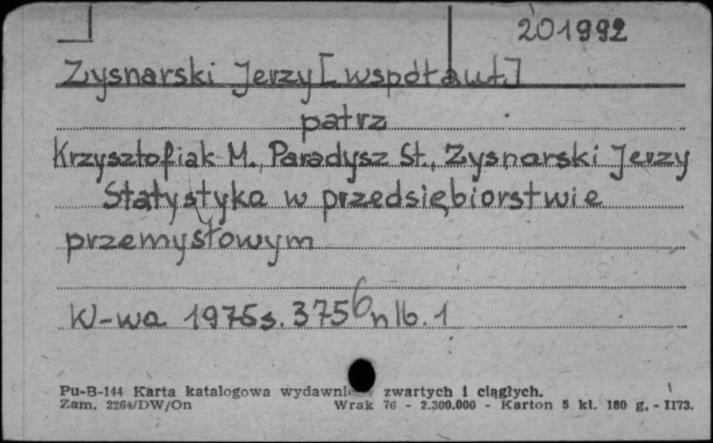 201992
Zysnarski Jerzy [współaut.]
patrz
Krzysztofiak M., Paradysz St., Zysnarski Jerzy
Statystyka w przedsiębiorstwie
przemysłowym
W-wa 1975 s. 375 6 nlb. 1
Pu-B-144 Karta katalogowa zwartych i ciągłych.
Zam. 2264/DW/On Wrak 76 - 2.300.000 - Karton 5 kl. 180 g. - II73.